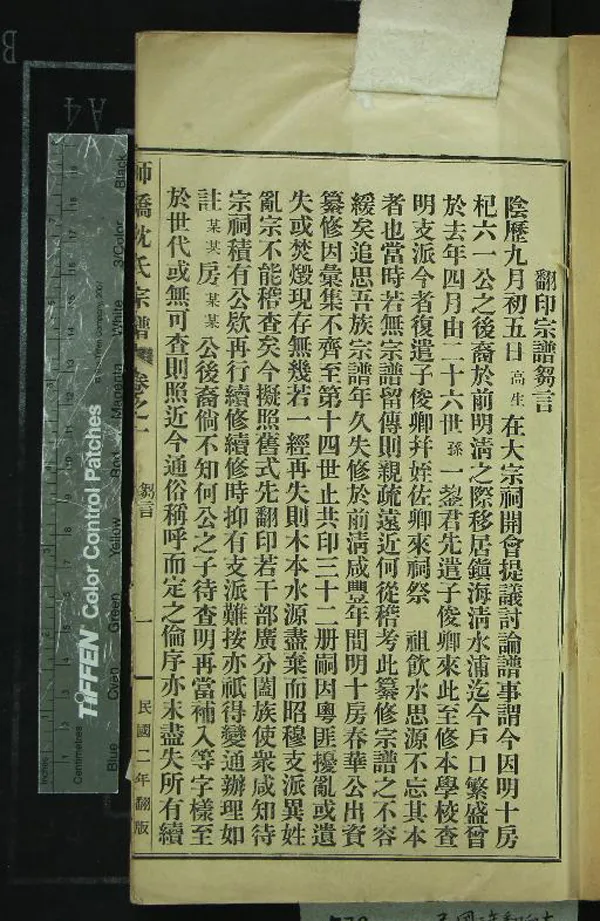 翻印宗譜芻言
陰歷九月初五日高生在大宗祠開會提議討論譜事謂今因明十房
杞六一公之後裔於前明清之際移居鎮海清水浦迄今戶口繁盛曾
於去年四月由二十六世孫一鋆君先遣子俊卿來此至修本學校查
明支派今者復遣子俊卿幷姪佐卿來祠祭 祖飲水思源不忘其本
者也當時若無宗譜留傳則親疏遠近何從稽考此纂修宗譜之不容
緩矣追思吾族宗譜年久失修於前清咸豐年間明十房春華公出資
纂修因彙集不齊至第十四世止共印三十二册嗣因粵匪擾亂或遺
失或焚燬現存無幾若一經再失則木本水源盡棄而昭穆支派異姓
亂宗不能稽查矣今擬照舊式先翻印若干部廣分闔族使衆咸知待
宗祠積有公欵再行續修續修時抑有支派難按亦祇得變通辦理如
註某某房某某公後裔倘不知何公之子待查明再當補入等字樣至
於世代或無可查則照近今通俗稱呼而定之倫序亦未盡失所有續
師橋沈氏宗譜 卷之一 芻言 一 民國二年翻版
TIFFEN Color Control Patches
Blue Cyan Green Yellow Red Magenta White 3/Color Black
Inches
Centimetres
A4
B